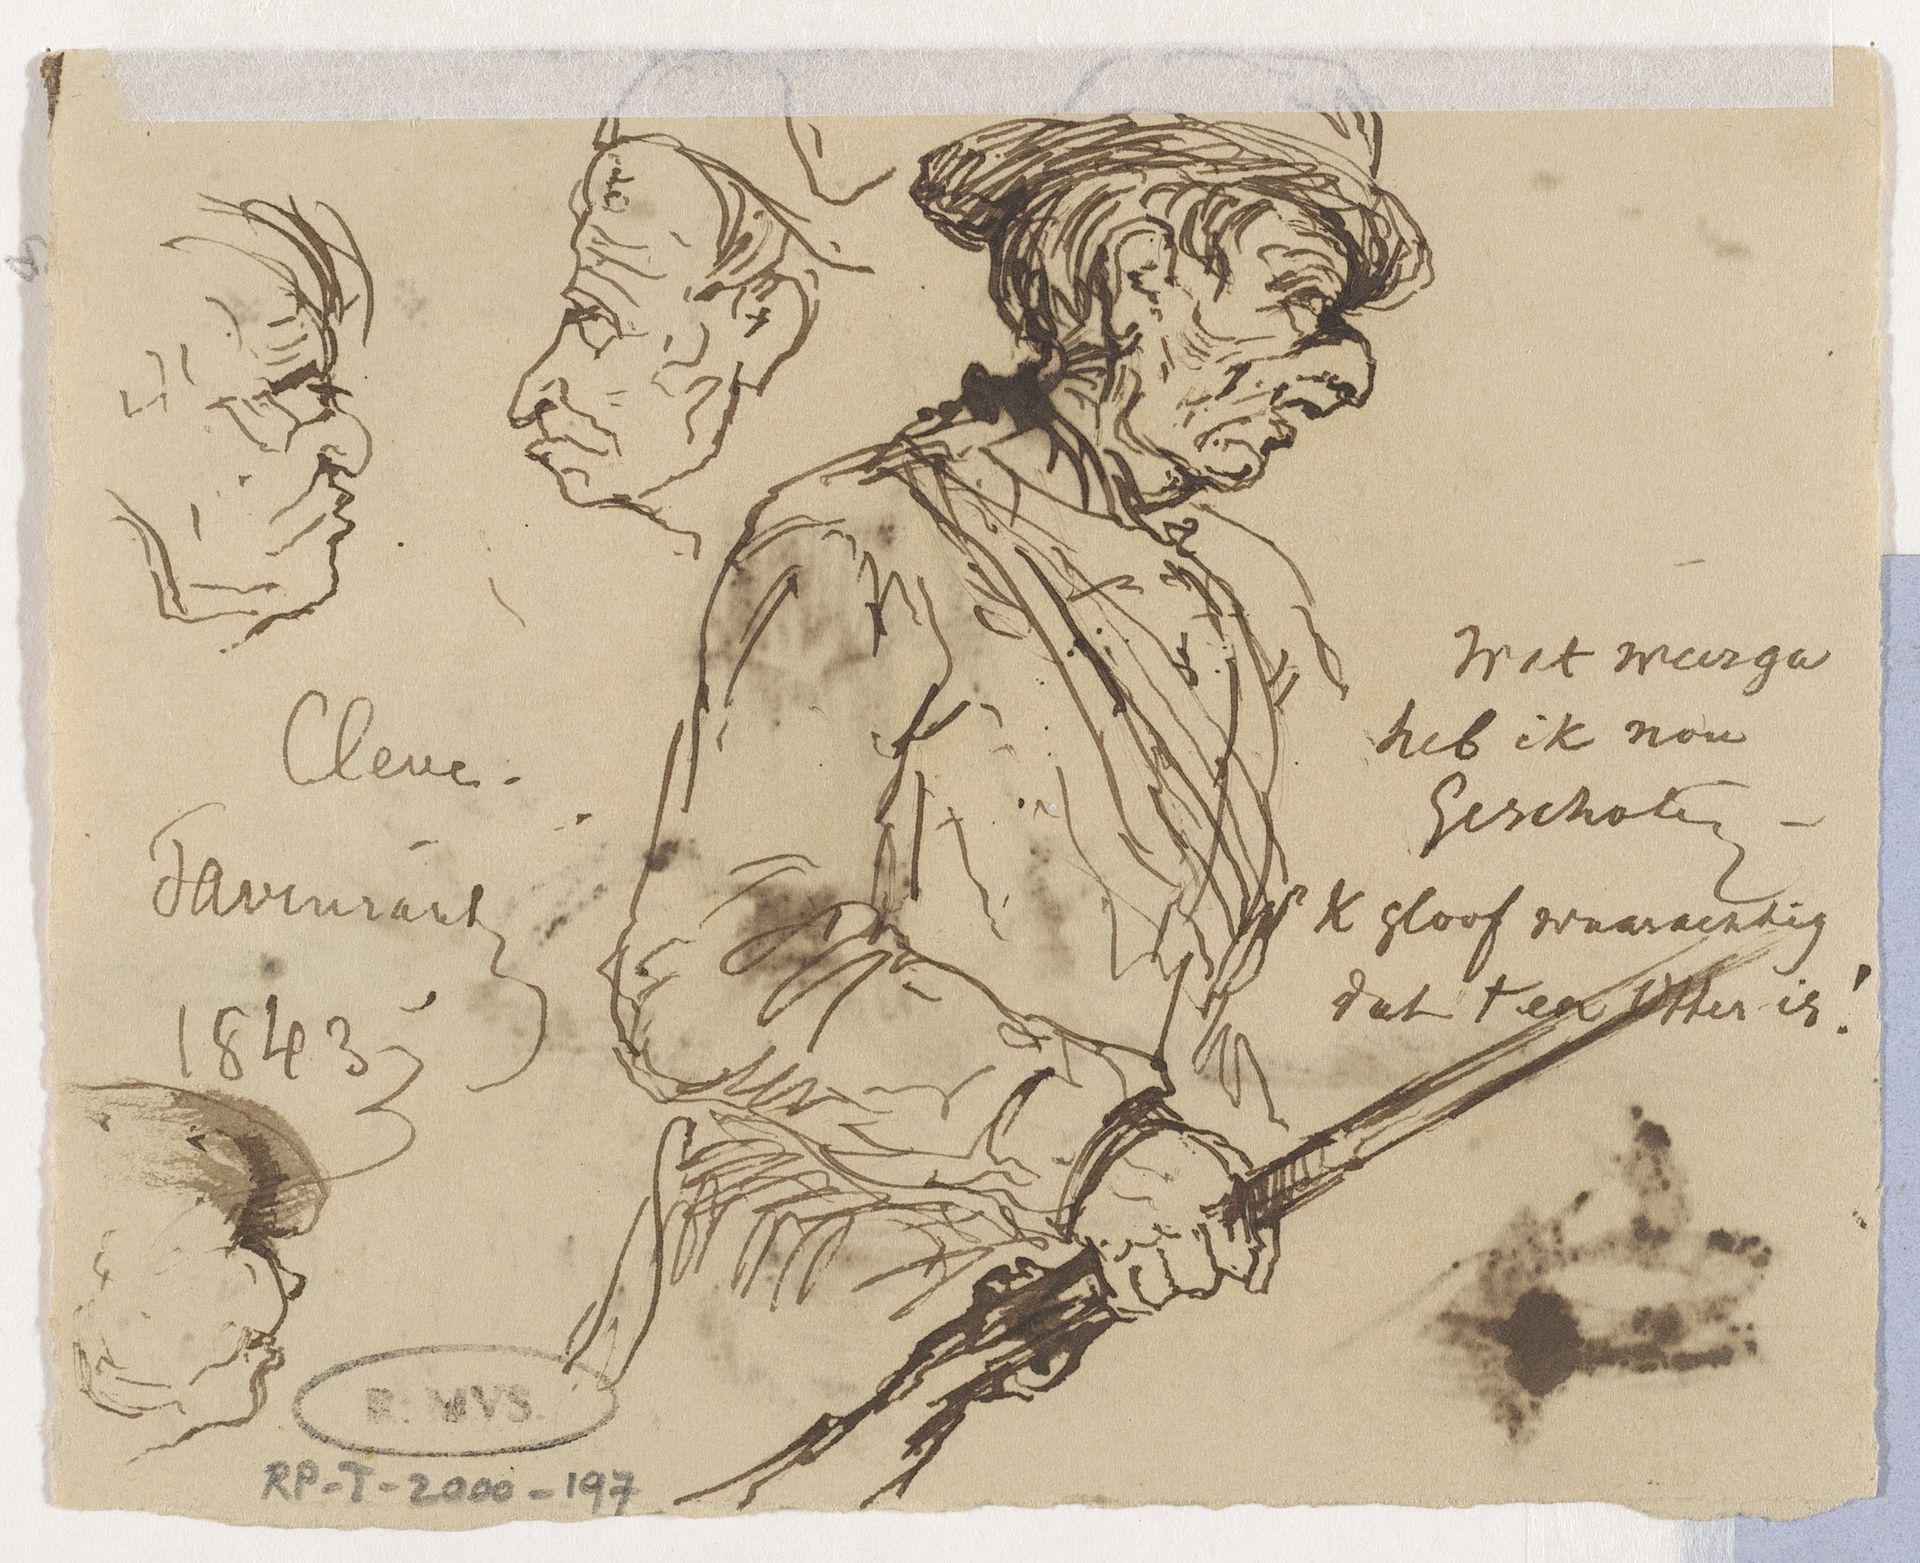 Cleve.
1843
Wat
heb ik nou
Geschoten -
'K gloof waarachtig
dat t een Otter is!
R. MVS.
RP-T-2000-197